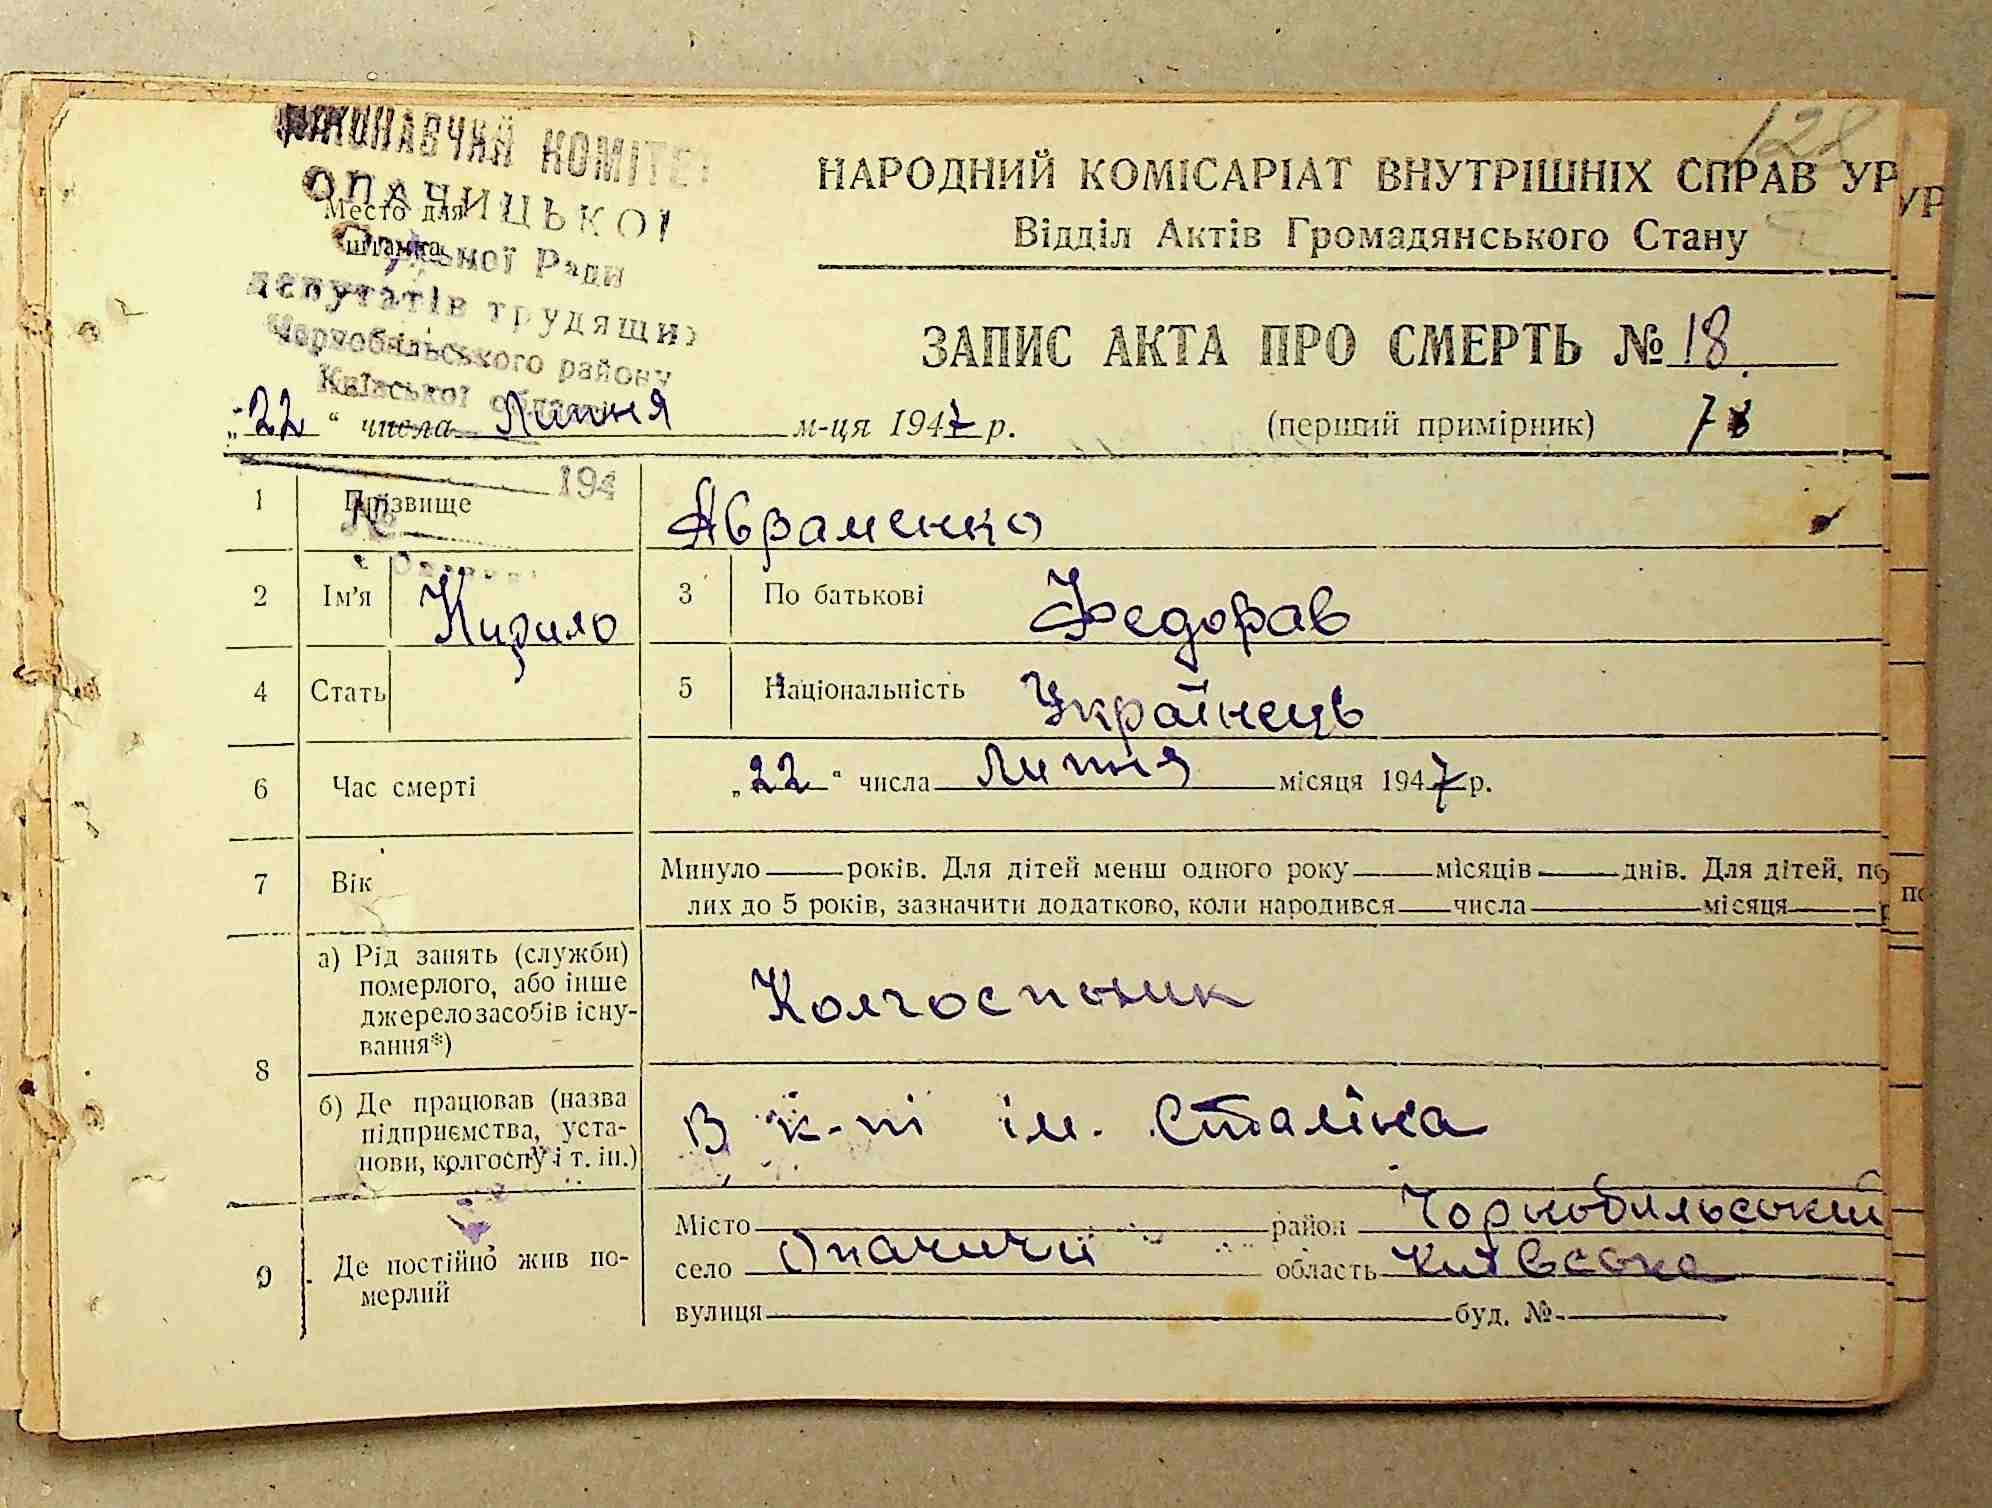 128
ВИКОНАВЧИЙ КОМІТЕ
ОПАЧИЦЬКОЇ
Сільської Ради
депутатів трудящих
Чорнобильського району
Київської області
194
№
Место для
штампа
НАРОДНИЙ КОМІСАРІАТ ВНУТРІШНІХ СПРАВ УР
УР
Відділ Актів Громадянського Стану
ЗАПИС АКТА ПРО СМЕРТЬ № 18
„22“ числа Липня м-ця 1947 р. (перший примірник)
1 Прізвище Авраменко
2 Ім'я Кирило 3 По батькові Федорав
4 Стать 5 Національність Українець
6 Час смерті „22“ числа Липня місяця 1947 р.
7 Вік Минуло — років. Для дітей менш одного року — місяців — днів. Для дітей, по
по
лих до 5 років, зазначити додатково, коли народився — числа — місяця — р
8 а) Рід занять (служби)
померлого, або інше
джерело засобів існу-
вання*)
Колгоспник
б) Де працював (назва
підприємства, уста-
нови, колгоспу і т. ін.)
В к-пі ім. Сталіна
9 Де постійно жив по-
мерлий
Місто район Чорнобильський
село Опачичі область Київська
вулиця буд. №